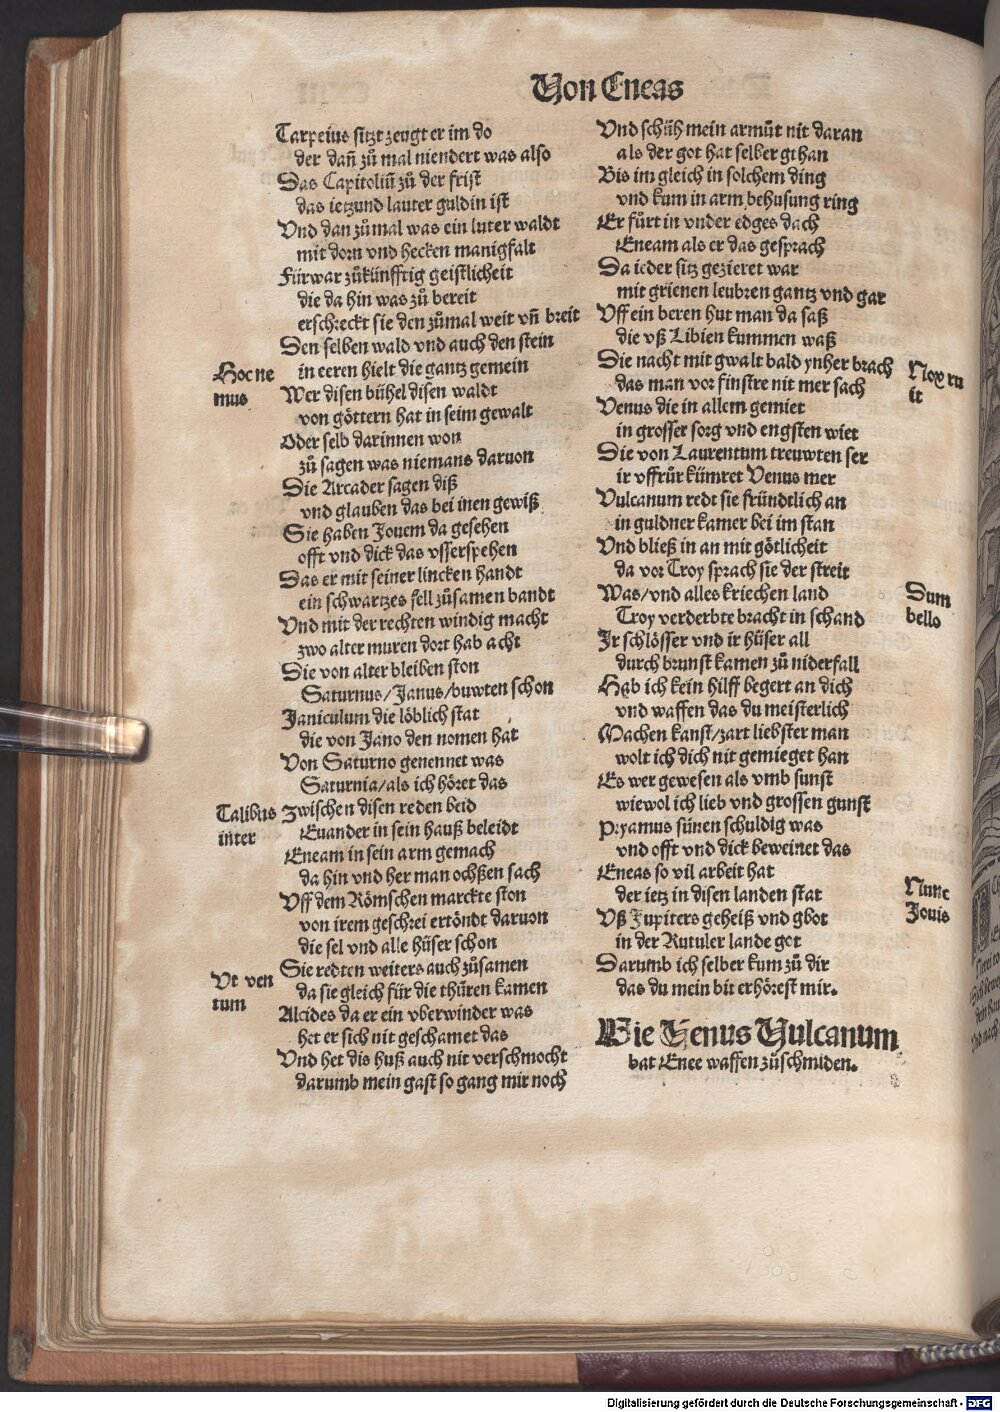 Von Eneas
Tarpeius sitzt zeugt er im do
der dañ zů mal niendert was also
Das Capitoliū zů der frist
das ietzund lauter guldin ist
Vnd dan zů mal was ein luter waldt
mit dorn vnd hecken manigfalt
Fürwar zůkünfftig geistlicheit
die da hin was zů bereit
erschreckt sie den zůmal weit vñ breit
Den selben wald vnd auch den stein
Hoc ne
mus
in eeren hielt die gantz gemein
Wer disen bühel disen waldt
von göttern hat in seim gewalt
Oder selb darinnen won
zů sagen was niemans daruon
Die Arcader sagen diß
vnd glauben das bei inen gewiß
Sie haben Jouem da gesehen
offt vnd dick das vsserspehen
Das er mit seiner lincken handt
ein schwartzes fell zůsamen bandt
Vnd mit der rechten windig macht
zwo alter muren dort hab acht
Die von alter bleiben ston
Saturnus/Janus/buwten schon
Janiculum die löblich stat
die von Jano den nomen hat
Von Saturno genennet was
Saturnia/als ich höret das
Talibus
inter
Zwischen disen reden beid
Euander in sein hauß beleidt
Eneam in sein arm gemach
da hin vnd her man ochßen sach
Vff dem Römschen marckte ston
von irem geschrei ertöndt daruon
die sel vnd alle hüser schon
Vt ven
tum
Sie redten weiters auch zůsamen
da sie gleich für die thüren kamen
Alcides da er ein vberwinder was
het er sich nit geschamet das
Vnd het dis huß auch nit verschmocht
darumb mein gast so gang mir noch
Vnd schüh mein armůt nit daran
als der got hat selber gthan
Bis im gleich in solchem ding
vnd kum in arm behusung ring
Er fůrt in vnder edges dach
Eneam als er das gesprach
Da ieder sitz gezieret war
mit grienen leubren gantz vnd gar
Vff ein beren hut man da saß
die vß Libien kummen waß
Die nacht mit gwalt bald ynher brach
Nox ru
it
das man vor finstre nit mer sach
Venus die in allem gemiet
in grosser sorg vnd engsten wiet
Die von Laurentum treuwten ser
ir vffrůr kümret Venus mer
Vulcanum redt sie fründtlich an
in guldner kamer bei im stan
Vnd bließ in an mit götlicheit
da vor Troy sprach sie der streit
Was/vnd alles kriechen land
Dum
bello
Troy verderbte bracht in schand
Jr schlösser vnd ir hüser all
durch brunst kamen zů niderfall
Hab ich kein hilff begert an dich
vnd waffen das du meisterlich
Machen kanst/zart liebster man
wolt ich dich nit gemieget han
Es wer gewesen als vmb sunst
wiewol ich lieb vnd grossen gunst
Pryamus sünen schuldig was
vnd offt vnd dick beweinet das
Eneas so vil arbeit hat
der ietz in disen landen stat
Nunc
Jouis
Vß Jupiters geheiß vnd gbot
in der Rutuler lande got
Darumb ich selber kum zů dir
das du mein bit erhörest mir.
Wie Venus Vulcanum
bat Enee waffen zůschmiden.
Digitalisierung gefördert durch die Deutsche Forschungsgemeinschaft - DFG